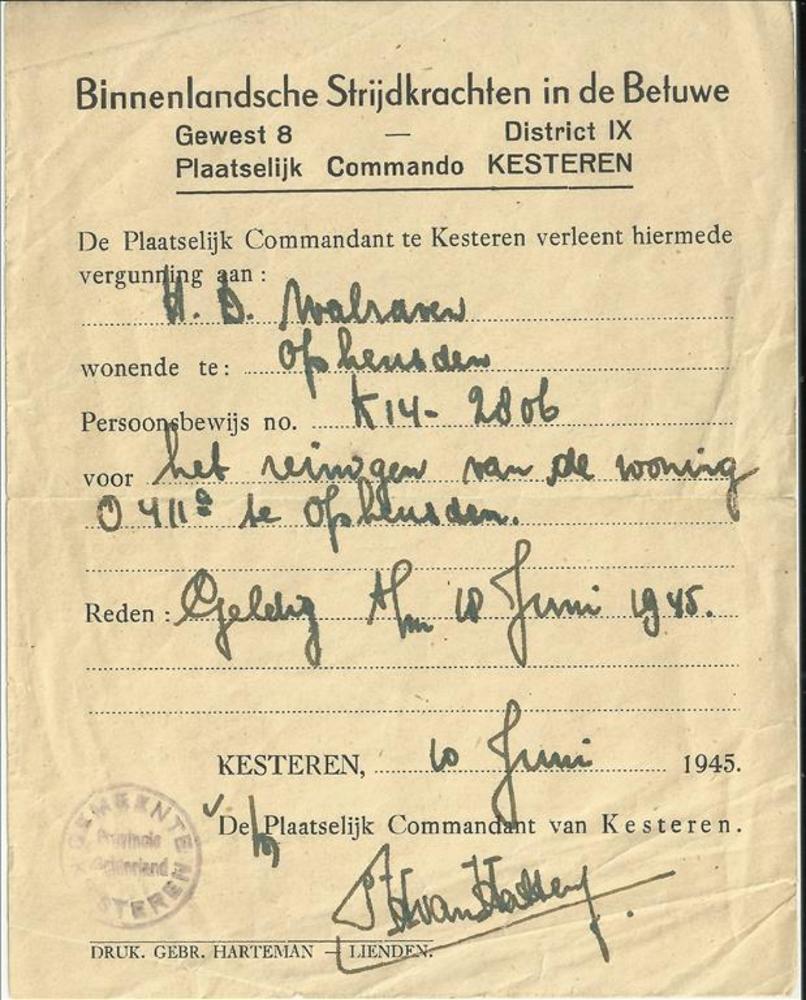 Binnenlandsche Strijdkrachten in de Betuwe
Gewest 8 — District IX
Plaatselijk Commando KESTEREN
De Plaatselijk Commandant te Kesteren verleent hiermede
vergunning aan :
H. D. Walraven
wonende te: Opheusden
Persoonsbewijs no. K 14- 2806
voor het reinigen van de woning
O 411ª te Opheusden.
Reden : Geldig t/m 18 Juni 1945.
KESTEREN, 10 Juni 1945.
De Plaatselijk Commandant van Kesteren.
GEMEENTE
Provincie
Gelderland
KESTEREN
DRUK. GEBR. HARTEMAN — LIENDEN.